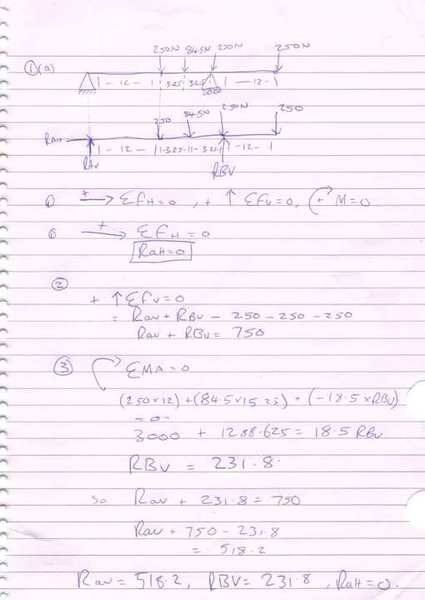 250N 84.5N 250N 250N
① (a)
1 - 12 - 1 3.25 3.25 1 - 12 - 1
250 84.5N 250N 250
RAH
1 - 12 - 1 1-3.25-1 1-3.25-1 1-12-1
RAV RBV
① + → ΣFH=0, + ↑ ΣFV=0, + M=0
+ → ΣFH=0
RAH=0
②
+ ↑ ΣFV=0
= RAV + RBV - 250 - 250 - 250
RAV + RBV = 750
③ ΣMA=0
(250×12) + (84.5×15.25) + (-18.5×RBV)
=0
3000 + 1288.625 = 18.5 RBV
RBV = 231.8
So RAV + 231.8 = 750
RAV = 750 - 231.8
= 518.2
RAV = 518.2, RBV = 231.8, RAH=0